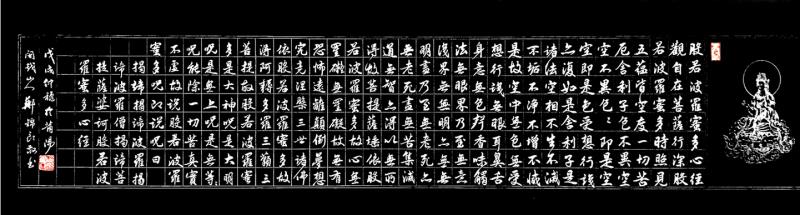 般若波羅蜜多心經
觀自在菩薩行深般
若波羅蜜多時照見
五蘊皆空度一切苦
厄舍利子色不異空
空不異色色即是空
空即是色受想行識
亦復如是舍利子是
諸法空相不生不滅
不垢不淨不增不減
是故空中無色無受
想行識無眼耳鼻舌
身意無色聲香味觸
法無眼界乃至無意
識界無無明亦無無
明盡乃至無老死亦
無老死盡無苦集滅
道無智亦無得以無所
得故菩提薩埵依般
若波羅蜜多故心無
罣礙無罣礙故無有
恐怖遠離顛倒夢想
究竟涅槃三世諸佛
依般若波羅蜜多故
得阿耨多羅三藐三
菩提故知般若波羅蜜
多是大神呪是大明
呪是無上呪是無等等
呪能除一切苦真實
不虛故說般若波羅
蜜多呪即說呪曰
揭諦揭諦波羅揭
諦波羅僧揭諦菩
提薩婆訶般若波
羅蜜多心經
戊戌仲穐於
山人鄭錦書